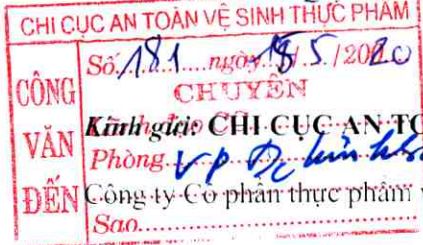 CHI CỤC AN TOÀN VỆ SINH THỰC PHẨM
CÔNG VĂN ĐẾN
Số 181 ngày 5/2020
CHUYÊN
Kính gửi: CHI CỤC AN TO
Phòng VP
Công ty Cổ phần thực phẩm
Sao